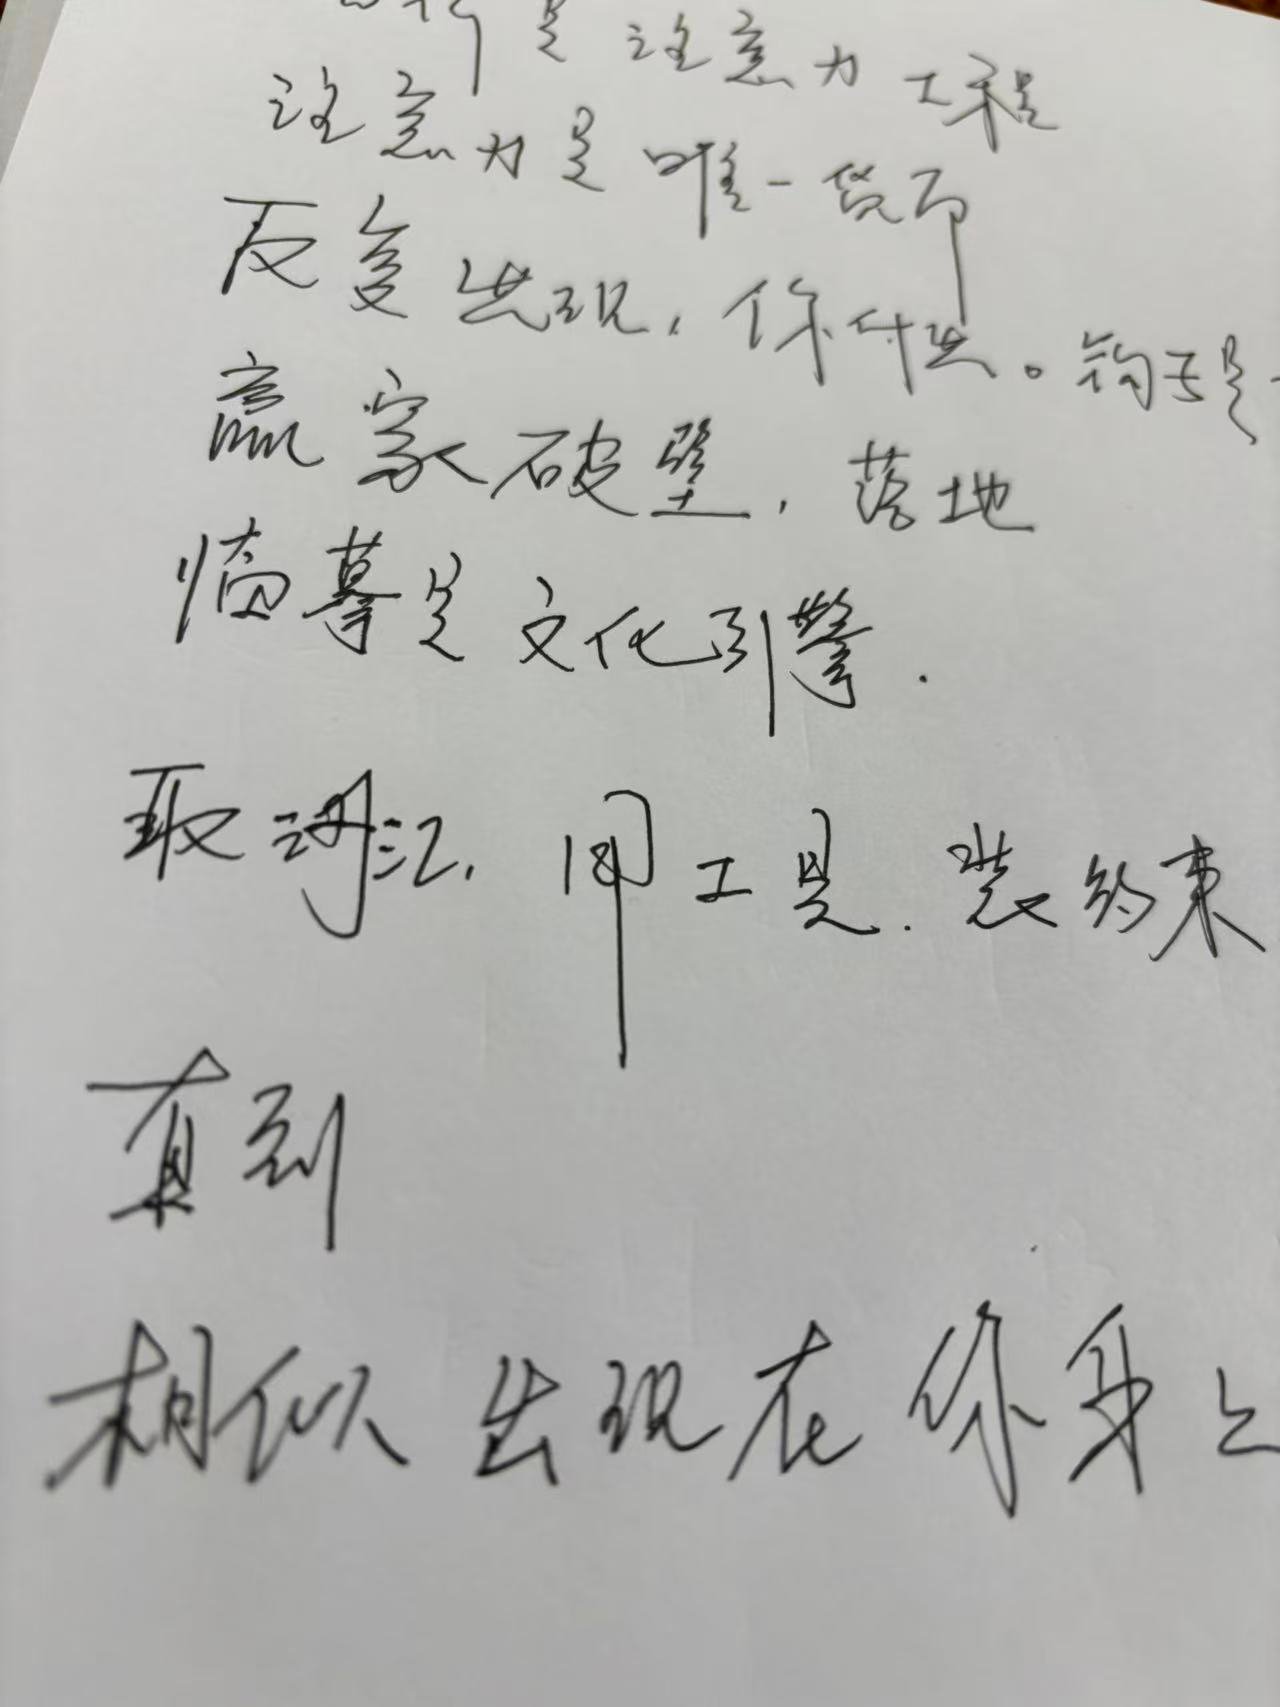 是注意力工程
注意力是唯一货币
反复出现，你付出。钩子是
赢家破壁，落地
临摹是文化引擎.
取词汇，用工具.装约束
直到
相似出现在你身上